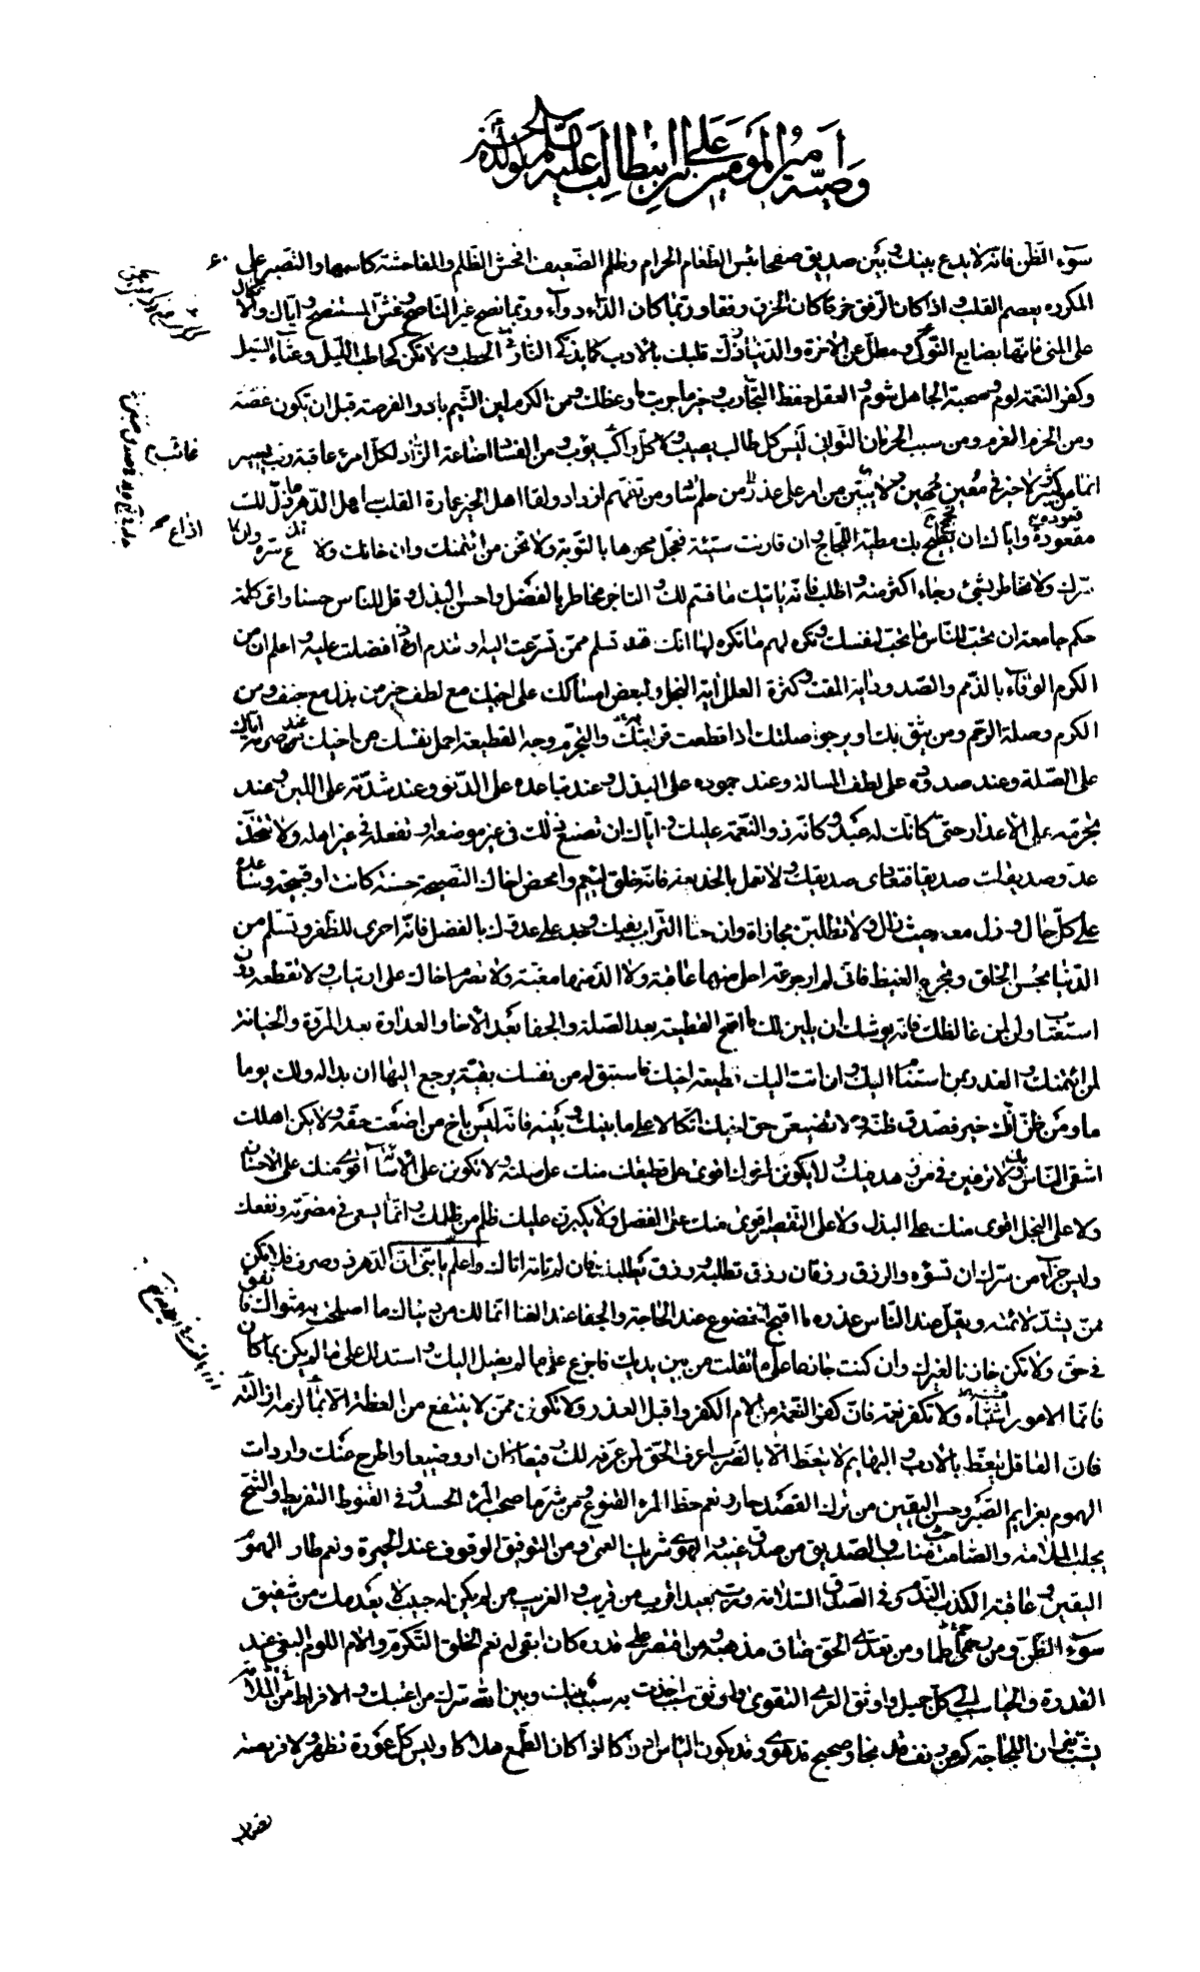 وصية أمير المؤمنين علي بن ابيطالب عليه السلام لولده الحسن
سوء الظن فانه لا يدع بينك وبين صديق صفحا بئس الطعام الحرام وظلم الضعيف افحش الظلم والفاحشة كاسمها والتصبر على
المكروه يعصم القلب و اذا كان الرفق خرقا كان الخرق رفقا وربما كان الداء دواء وربما نصح غير الناصح وغش المستنصح و اياك والاتكال
على المنى فانها بضايع النوكى و مطل عن الاخرة والدنيا ذك قلبك بالادب كما يذكى النار الحطب ولا تكن كحاطب الليل وغثاء السيل
وكفر النعمة لوم وصحبة الجاهل شوم و العقل حفظ التجارب وخير ما جربت ما وعظك ومن الكرم لين الشيم بادر الفرصة قبل ان يكون غصة
ومن الحزم العزم ومن سبب الحرمان التواني ليس كل طالب يصيب ولا كل راكب يؤب ومن الفساد اضاعة الزاد لكل امرء عاقبة رب يسير
انما من كثير ولا خير في معين مهين ولا تبيتن من امر على عذر من حلم ساد ومن تفهم ازداد ولقا اهل الخير عمارة القلب ساهل الدهر ما ذل لك
قعوده واياك ان تطيح بك مطية اللجاج و ان قارفت سيئة فعجل محوها بالتوبة ولا تخن من ائتمنك وان خانك ولا تذع سره وان
سرك ولا تخاطر بشئ رجاء اكثر منه و اطلب فانه ياتيك ما قسم لك و التاجر مخاطر خذ بالفضل واحسن البذل و قل للناس حسنا واى كلمة
حكم جامعة ان تحب للناس ما تحب لنفسك و تكره لهم ما تكره لها انك قد تسلم ممن تسرعت اليه و تندم ان افضلت عليه و اعلم ان من
الكرم الوفاء بالذمم والصدود اية المقت وكثرة العلل اية البخل و لبعض امساكك على اخيك مع لطف خير من بذل مع جنف و من
الكرم وصلة الرحم ومن يثق بك او يرجو صلتك اذا قطعت قرابتك والتجرم وجه القطيعة احمل نفسك من اخيك عند صرمه اياك
على الصلة وعند صدوده على لطف المسالة وعند جموده على البذل و عند تباعده على الدنو وعند شدته على اللين و عند
تجرمه على الاعذار حتى كانك له عبد و كانه ذو النعمة عليك و اياك ان تصنع ذلك في غير موضعه او تفعله في غير اهله ولا تتخذن
عدو صديقك صديقا فتعادى صديقك و لا تعمل بالخديعة فانه خلق لئيم و امحض اخاك النصيحة حسنة كانت او قبيحة وساعده
على كل حال و زل معه حيث زال و لا تطلبن مجازاة وان حثا التراب بفيك و خذ على عدوك بالفضل فانه احرى للظفر و تسلم من
الدنيا بحسن الخلق و تجرع الغيظ فانى لم ار جرعة احلى منها عاقبة ولا الذ منها مغبة ولا تصرم اخاك على ارتياب ولا تقطعه دون
استعتاب و لن لمن غالظك فانه يوشك ان يلين لك ما اقبح القطيعة بعد الصلة والجفا بعد الاخا والعداوة بعد المودة والخيانة
لمن ائتمنك و الغدر بمن استنام اليك و ان انت اليك قطيعة اخيك فاستبق له من نفسك بقية يرجع اليها ان بدا له ذلك يوما
ما ومن ظن بك خيرا فصدق ظنه و لا تضيعن حق اخيك اتكالا على ما بينك و بينه فانه ليس باخ من اضعت حقه و لا يكن اهلك
اشقى الناس بك و لا ترغبن فيمن زهد فيك و لا يكونن اخوك اقوى على قطيعتك منك على صلته و لا تكونن على الاساءة اقوى منك على الاحسان
ولا على البخل اقوى منك على البذل ولا على التقصير اقوى منك على الفضل و لا يكبرن عليك ظلم من ظلمك و انما يسعى في مضرته ونفعك
وليس جزاء من سرك ان تسوؤه والرزق رزقان رزق تطلبه و رزق يطلبك فان لم تاته اتاك واعلم يا بنى ان الدهر ذو صروف فلا تكن
ممن يشتد لائمته ويقل عند الناس عذره ما اقبح الخضوع عند الحاجة والجفا عند الغنا انما لك من دنياك ما اصلحت به مثواك فانفق
في حق و لا تكن خازنا لغيرك وان كنت جازعا على ما انفلت من بين يديك فاجزع على ما لم يصل اليك و استدلل على ما لم يكن بما كان
فانما الامور اشباه ولا تكفر نعمة فان كفر النعمة من الام الكفر واقبل العذر ولا تكونن ممن لا ينتفع من العظة الا بما لزمه ازالته
فان العاقل يتعظ بالادب و البهايم لا يتعظ الا بالضرب اعرف الحق لمن عرفه لك رفيعا كان او وضيعا و اطرح عنك واردات
الهموم بعزايم الصبر و حسن اليقين من ترك القصد جار و نعم حظ المرء القنوع و من شر ما صحب المرء الحسد و في القنوط التفريط والشح
يجلب الملامة والصاحب مناسب والصديق من صدق غيبه و الهوى شريك العمى ومن التوفيق الوقوف عند الحيرة و نعم طارد الهموم
اليقين و عاقبة الكذب الندم و في الصدق السلامة ورب بعيد اقرب من قريب و الغريب من لم يكن له حبيب لا يعدمك من شفيق
سوء الظن ومن حمى ظما ومن تعدى الحق ضاق مذهبه و من اقتصر على قدره كان ابقى له نعم الخلق التكرم و الام اللوم البغي عند
القدرة والحيا سبب الى كل جميل و اوثق العرى التقوى و اوثق سبب اخذت به سبب بينك وبين الله سرك من اعتبك و الافراط في الملامة
يشب نيران اللجاجة كم من دنف قد نجا و صحيح قد هوى و قد يكون الياس ادراكا اذا كان الطمع هلاكا وليس كل عورة تظهر و لا فريضة